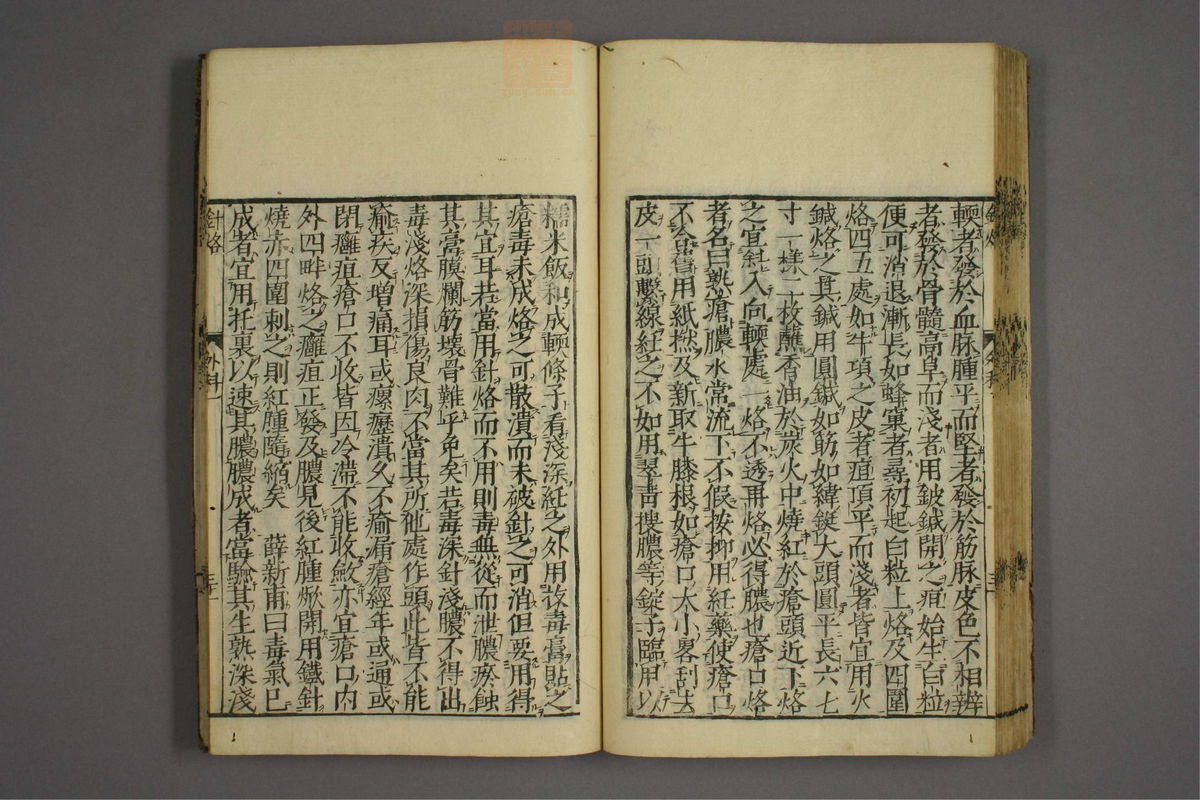 輭者發於血脉腫平而堅者發於筋脉皮色不相辨
者發於骨髓高阜而淺者用鈹鍼開之疽始生白粒
便可消退漸長如蜂窠者尋初起白粒上烙及四圍
烙四五處如牛項之皮者疽頂平而淺者皆宜用火
鍼烙之其鍼用圓鍼如筋如緯鋌大頭圓平長六七
寸一樣二枚蘸香油於炭火中燒紅於瘡頭近下烙
之宜斜入向輭處一烙不透再烙必得膿也瘡口烙
者名曰熟瘡膿水常流下不假按抑用紝藥使瘡口
不合舊用紙撚及新取牛膝根如瘡口大小畧刮去
皮一頭繫線紝之不如用翠靑搜膿等錠子臨用以
糯米飯和成輭條子看淺深紝之外用拔毒膏貼之
瘡毒未成烙之可散潰而未破針之可消但要用得
其宜耳若當用針烙而不用則毒無從而泄膿瘀蝕
其膏膜爛筋壞骨難乎免矣若毒深針淺膿不得出
毒淺烙深損傷良肉不當其所他處作頭此皆不能
瘉疾反增痛耳或瘰癧潰久不瘉屑瘡經年或通或
閉癰疽瘡口不收皆因冷滯不能收斂亦宜瘡口內
外四畔烙之癰疽正發及膿見後紅腫焮開用鐵針
燒赤四圍刺之則紅腫隨縮矣 薛新甫曰毒氣已
成者宜用托裏以速其膿膿成者當驗其生熟深淺
針烙
外科一